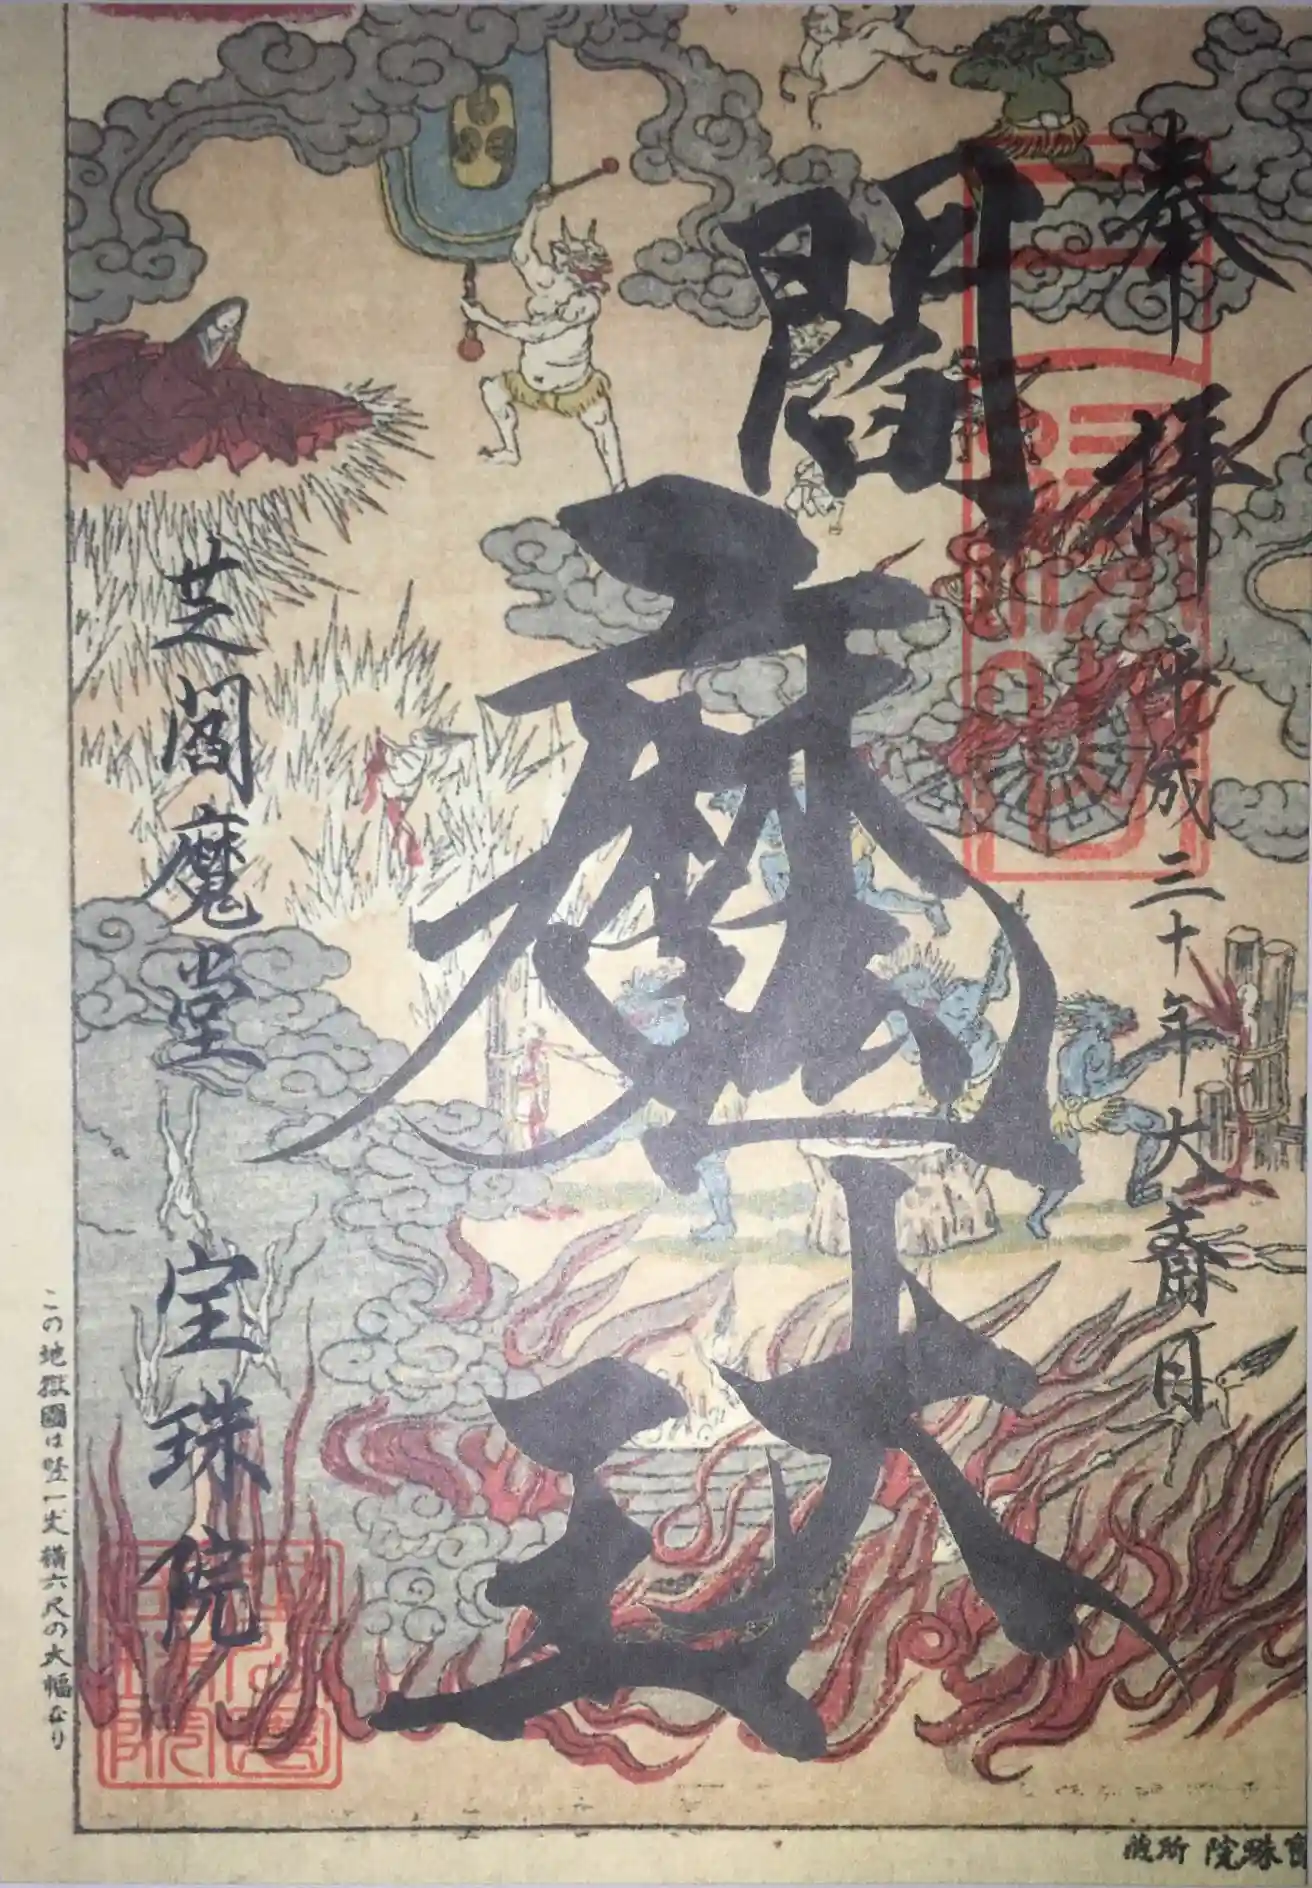 奉拝 平成三十年大斎日
閻魔大王
芝閻魔堂 宝珠院
この地獄圖は竪一丈横六尺の大幅なり
寳珠院所蔵